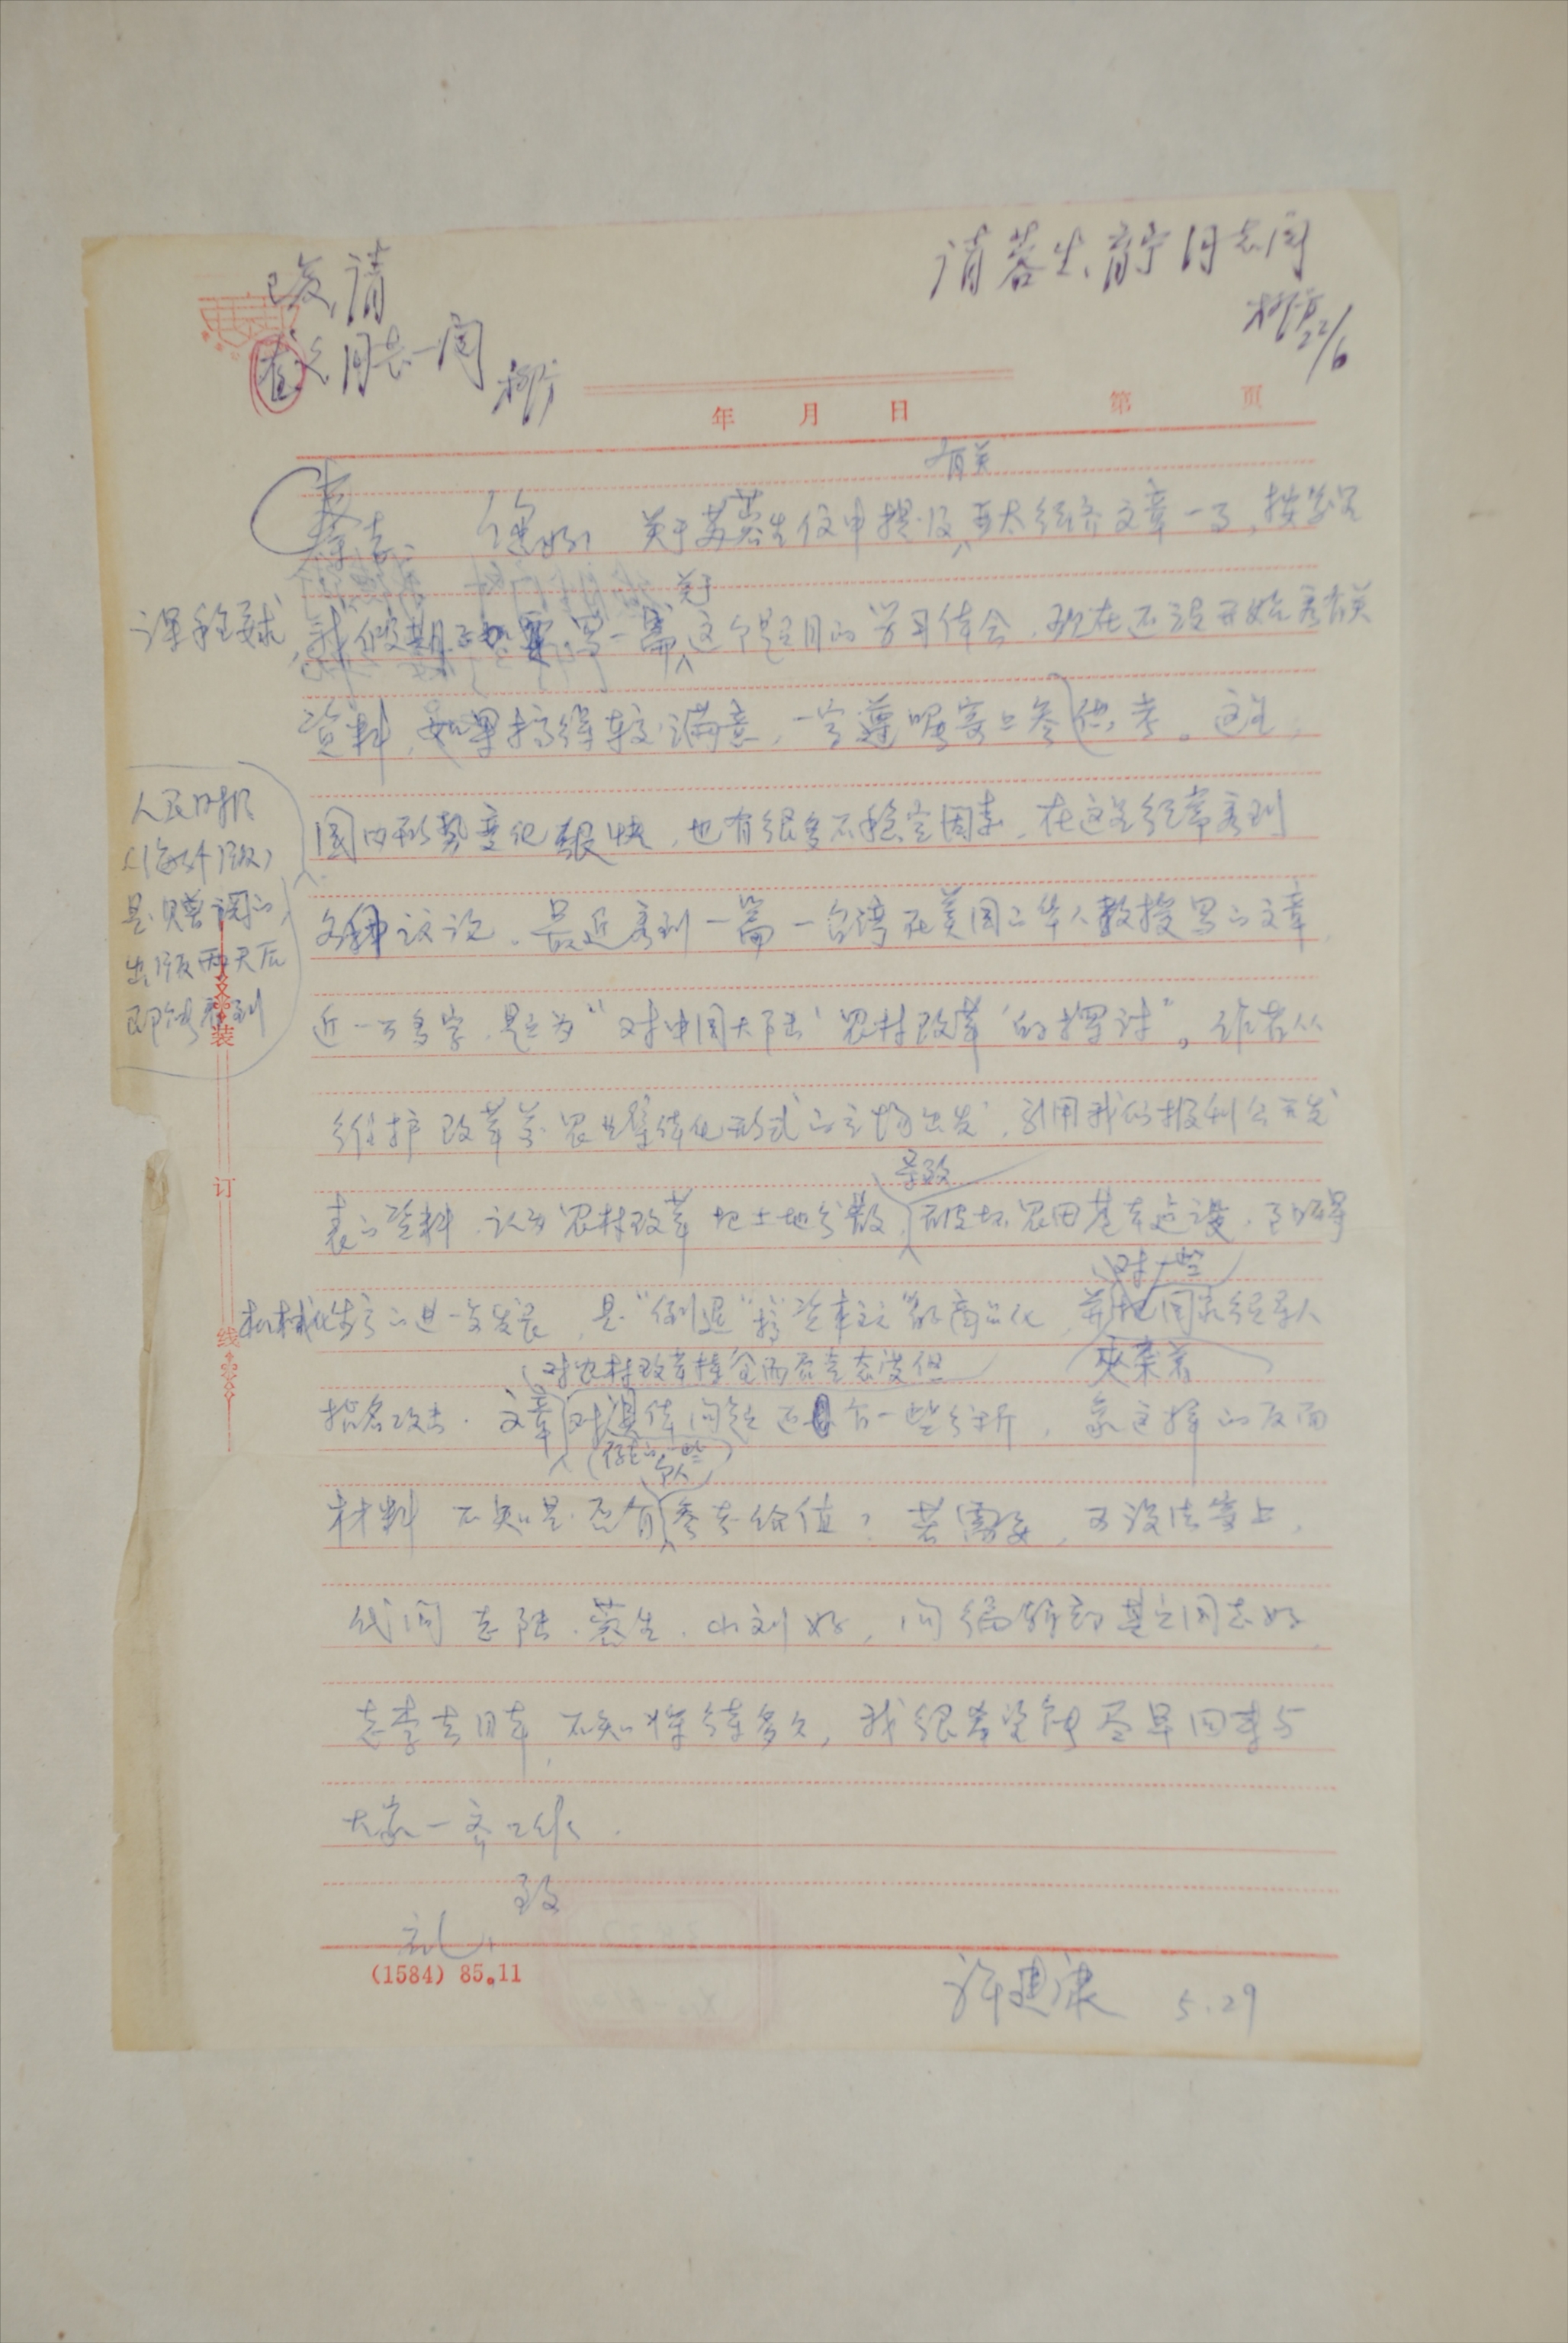 已复，请
同志一阅
请蓉生、育宁同志阅
22/6
年 月 日 第 页
有关
您好！关于苏蓉生信中提及亚太经济文章一事，按学完
关于
课程要求，我假期要写一篇这个题目的学习体会，现在还没开始看有关
资料，如果搞得较满意，一定遵嘱寄上参供考。这里，
人民日报
（海外版）
是赠阅的，
出版两天后
即能看到
国内形势变化很快，也有很多不稳定因素，在这里经常看到
各种议论。最近看到一篇一台湾在美国的华人教授写的文章，
近一万多字，题为“对中国大陆‘农村改革’的探讨”。作者从
维护改革前农业集体化形式的立场出发，引用我们报刊公开发
导致
表的资料，认为农村改革把土地分散，破坏农田基本建设，阻碍
对一些
机械化生产的进一步发展，是“倒退”搞“资本主义”的商品化，并把国家领导人
对农村改革持全面否定态度但
夹杂着
指名攻击。文章对具体问题还有一些分析，象这样的反面
（存在的一些）
个人
材料不知是否有参考价值？若需要，可设法寄上，
代问老陆、蓉生、小刘好，问编辑部其它同志好，
老李去日本，不知将待多久，我很希望能尽早回来与
大家一齐工作。
致
礼！
(1584) 85.11
许建康 5.29
装
订
线